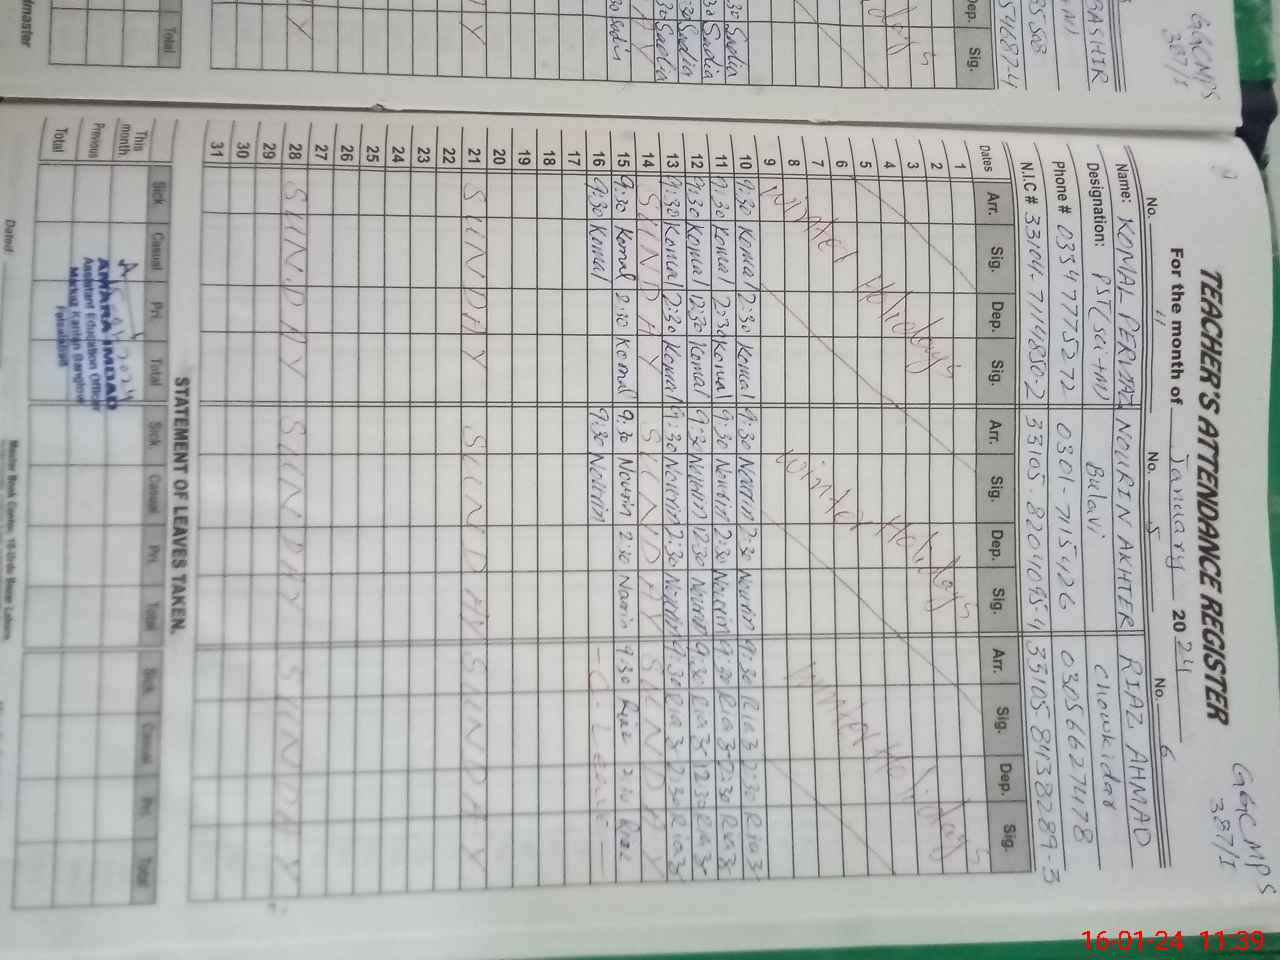 GGCMPS
387/I
TEACHER'S ATTENDANCE REGISTER
For the month of January 2024
No. 4 No. 5 No. 6
Name: KOMAL PERVIAZ NOURIN AKHTER RIAZ AHMAD
Designation: PST(sci+M) Bulavi Chowkidar
Phone # 03347775272 0301-7154126 03056627478
N.I.C # 33104-7114850-2 33105-8204095-4 33105 8438289-3
Dates Arr. Sig. Dep. Sig. Arr. Sig. Dep. Sig. Arr. Sig. Dep. Sig.
1
2
3
4
5
6
7
8
9
Winter Holidays Winter Holidays Winter Holidays
10 9:30 Komal 2:30 Komal 9:30 Nourin 2:30 Nourin 9:30 Riaz 2:30 Riaz
11 9:30 Komal 2:30 Komal 9:30 Nourin 2:30 Nourin 9:30 Riaz 2:30 Riaz
12 9:30 Komal 12:30 Komal 9:30 Nourin 12:30 Nourin 9:30 Riaz 12:30 Riaz
13 9:30 Komal 2:30 Komal 9:30 Nourin 2:30 Nourin 9:30 Riaz 2:30 Riaz
14 SUNDAY SUNDAY SUNDAY
15 9:30 Komal 2:30 Komal 9:30 Nourin 2:30 Narin 9:30 Riaz 2:30 Riaz
16 9:30 Komal 9:30 Nourin - C - Leave -
17
18
19
20
21 SUNDAY SUNDAY SUNDAY
22
23
24
25
26
27
28 SUNDAY SUNDAY SUNDAY
29
30
31
STATEMENT OF LEAVES TAKEN.
Sick Casual Pri. Total Sick. Casual Pri. Total Sick. Casual Pri. Total
This month
Previous
Total
AMARA IMDAD
Assistant Education Officer
Markaz Kanian Banglow
Faisalabad
Dated
Master Book Center, 16-Urdu Bazar Lahore.
GGCMPS
387/I
BASHIR
Dep. Sig.
30 Sadia
30 Sadia
30 Sadia
30 Sadia
Total
16-01-24 11:39